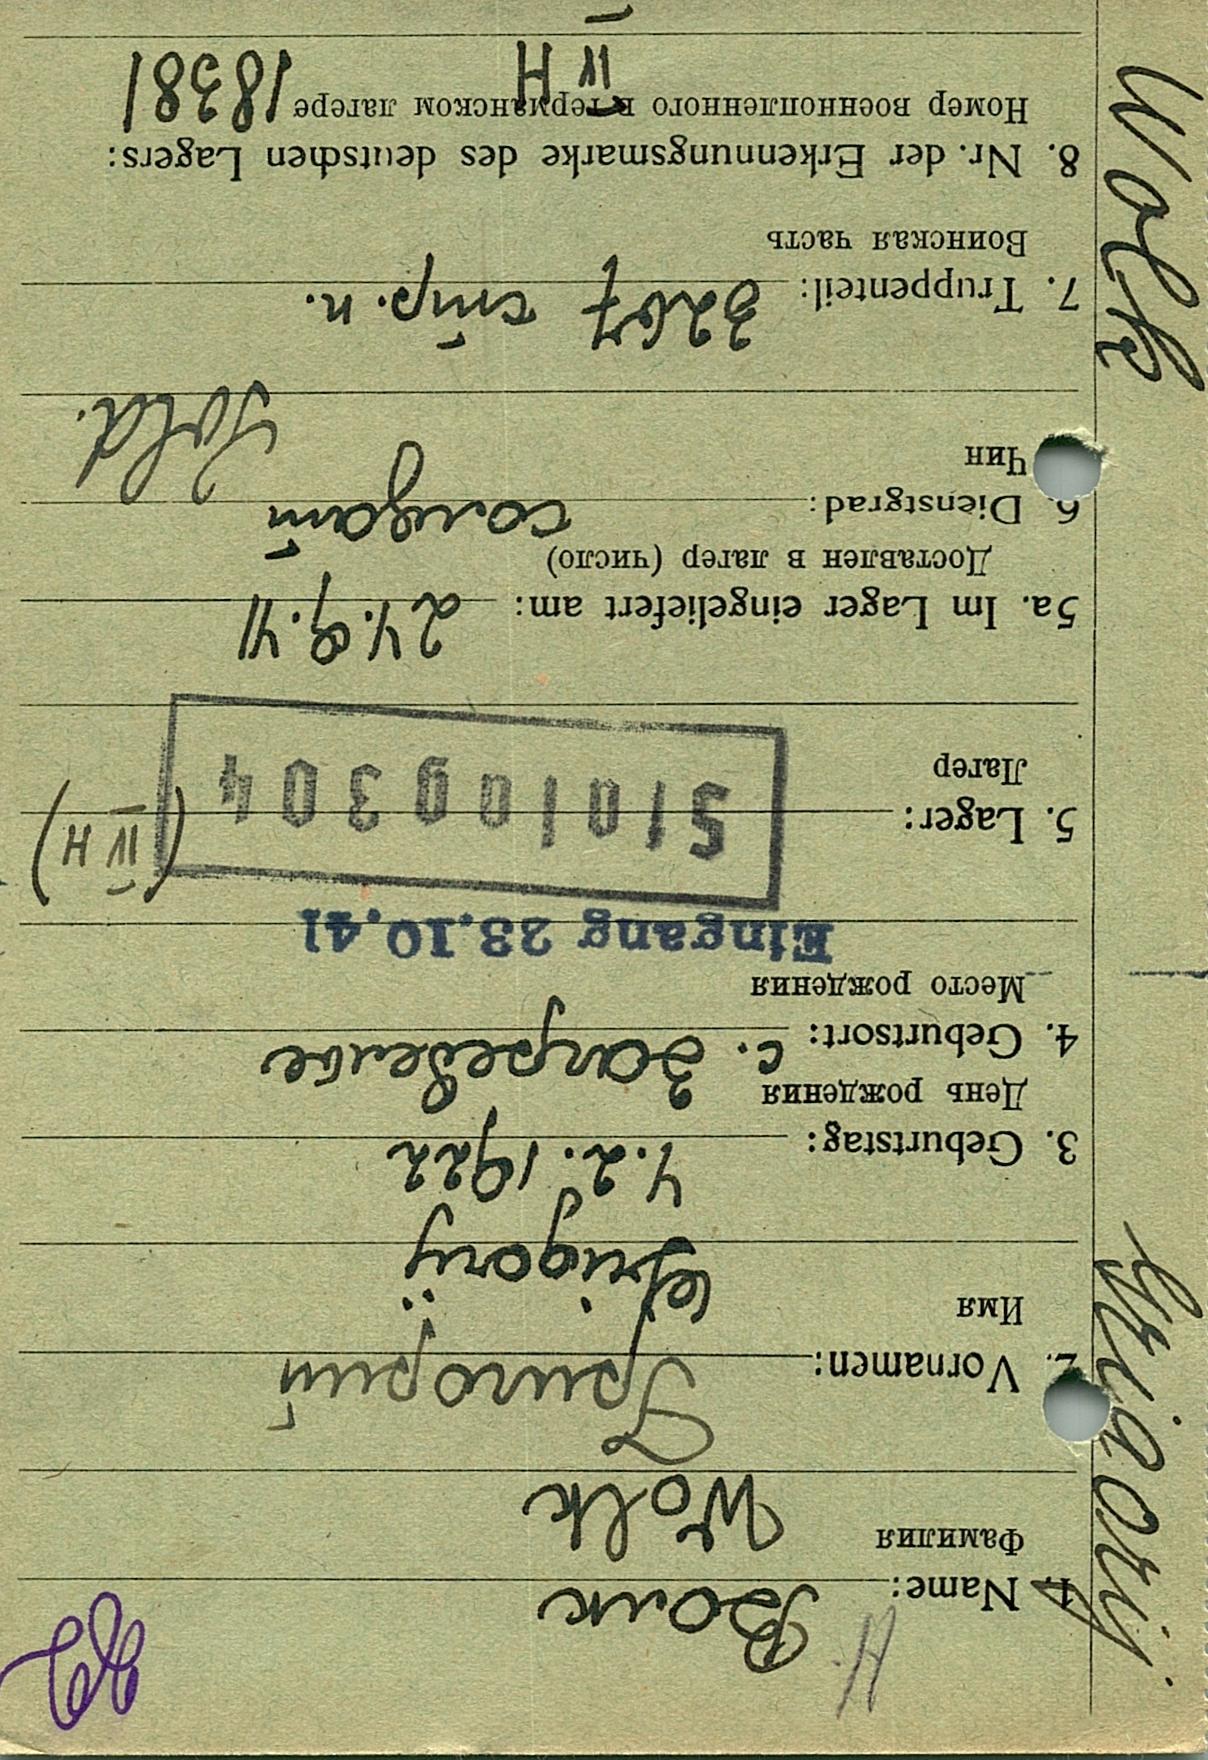 1. Name: Волк
Фамилия
Wolk
2. Vornamen: Григорий
Имя
Grigorij
3. Geburtstag: 4.2.1922
День рождения
4. Geburtsort: с.
Место рождения
Eingang 23.10.41
5. Lager: Stalag 304 (IV H)
Лагер
5a. Im Lager eingeliefert am: 24.9.41
Доставлен в лагер (число)
6. Dienstgrad: солдат
Чин
Sold.
7. Truppenteil: 3267 стр. п.
Воинская часть
8. Nr. der Erkennungsmarke des deutschen Lagers:
Номер военнопленного в германском лагере 18381
IV H
Wolk Grigorij